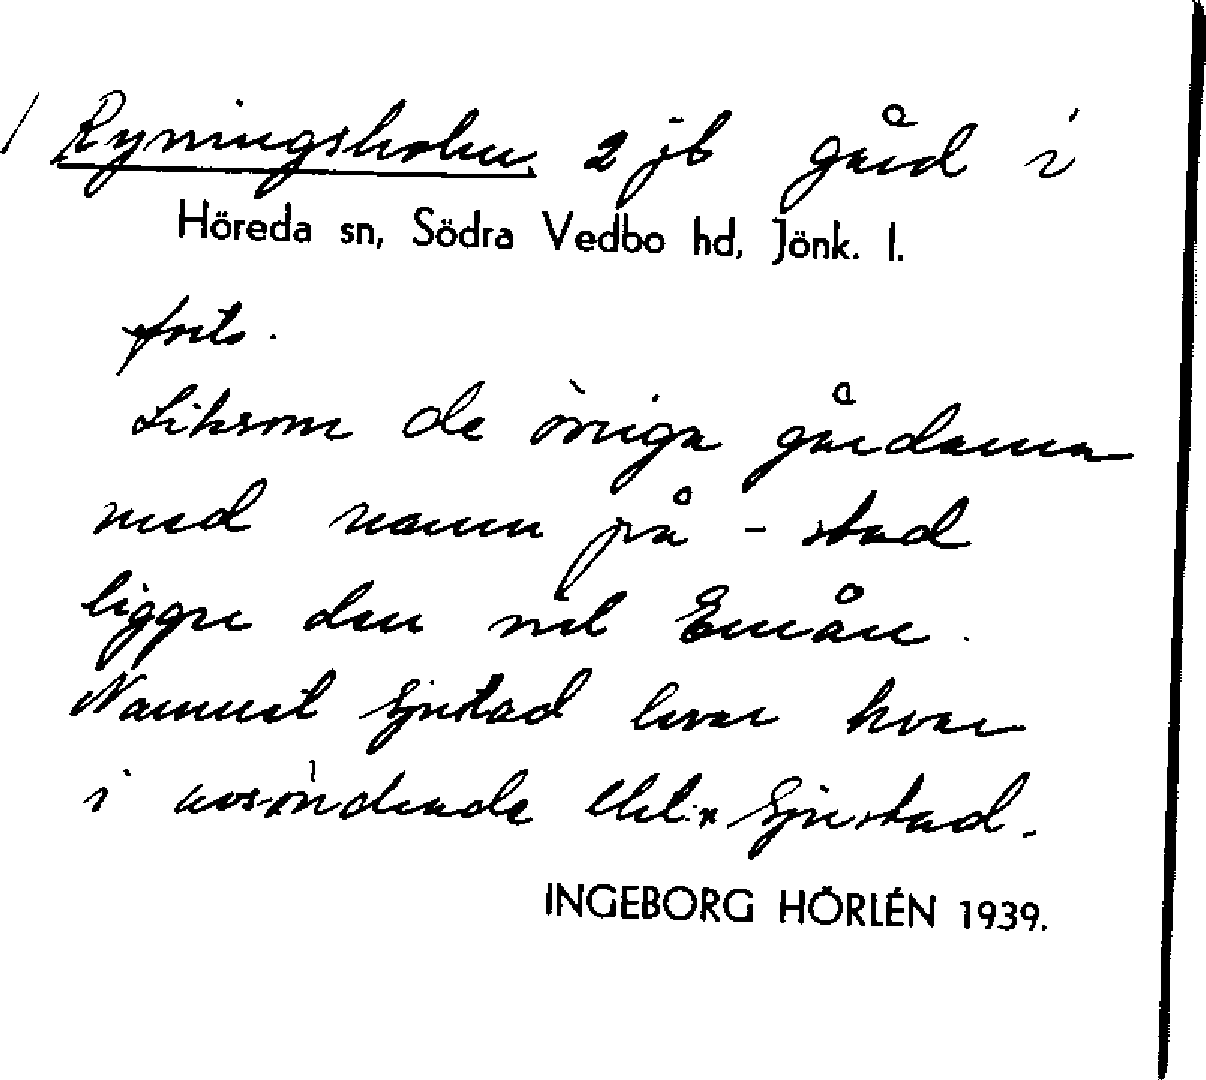 / Ryningsholm 2 jb gård i
Höreda sn, Södra Vedbo hd, Jönk. l.
forts.
Liksom de övriga gårdarna
med namn på - stad
ligger den vid Emån.
Namnet Gjestad lever kvar
i avsöndrade Gjestad.
INGEBORG HÖRLÉN 1939.